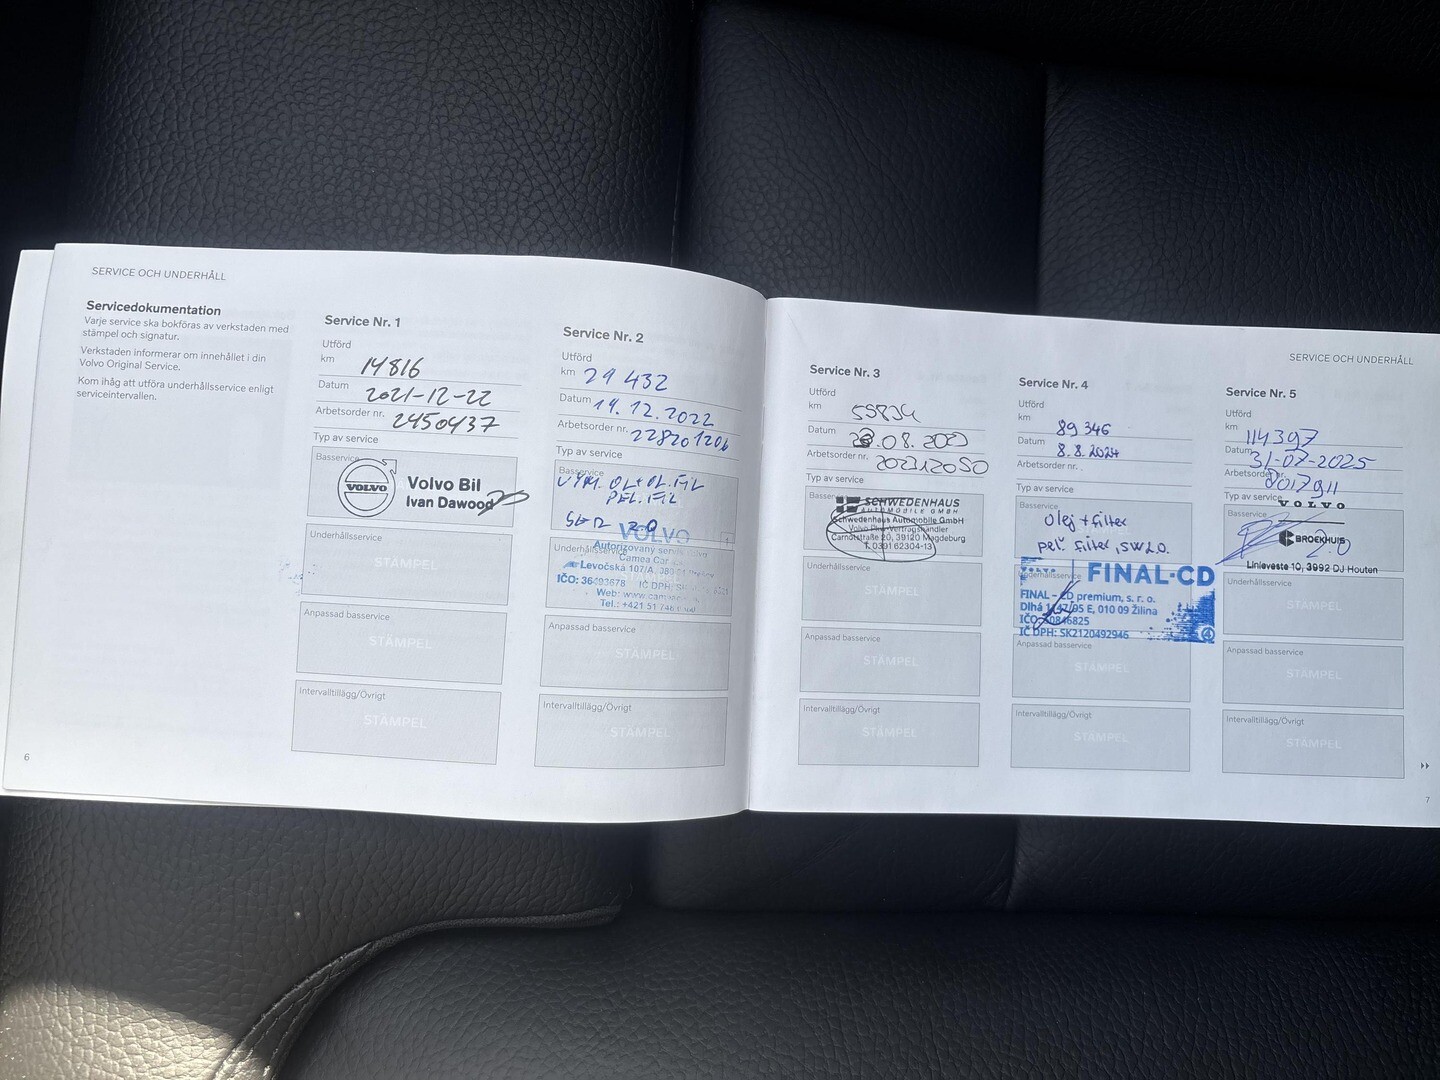 SERVICE OCH UNDERHÅLL
Servicedokumentation
Varje service ska bokföras av verkstaden med
stämpel och signatur.
Verkstaden informerar om innehållet i din
Volvo Original Service.
Kom ihåg att utföra underhållsservice enligt
serviceintervallen.
6
Service Nr. 1
Utförd
km 14816
Datum 2021-12-22
Arbetsorder nr. 2450437
Typ av service
Basservice
VOLVO
Volvo Bil
Ivan Dawood
Underhållsservice
STÄMPEL
Anpassad basservice
STÄMPEL
Intervalltillägg/Övrigt
STÄMPEL
Service Nr. 2
Utförd
km 29 432
Datum 14.12.2022
Arbetsorder nr. 228201206
Typ av service
Basservice
VYM. OL+OL.FIL
PEL.FIL
2.0
VOLVO
Autorizovaný servis
Underhållsservice
Camea Car
Levočská 107/A,
IČO: IČ DPH:
Web: www.
Tel.: +421 51 746
Anpassad basservice
STÄMPEL
Intervalltillägg/Övrigt
STÄMPEL
SERVICE OCH UNDERHÅLL
Service Nr. 3
Utförd
km 55834
Datum .08.2023
Arbetsorder nr. 202312050
Typ av service
SCHWEDENHAUS
AUTOMOBILE GMBH
Schwedenhaus Automobile GmbH
Volvo Plus Vertragshändler
Carnotstraße 20, 39120 Magdeburg
T. 0391 62304-13
Underhållsservice
STÄMPEL
Anpassad basservice
STÄMPEL
Intervalltillägg/Övrigt
STÄMPEL
Service Nr. 4
Utförd
km 89 346
Datum 8.8.2024
Arbetsorder nr.
Typ av service
Basservice
olej + filter
peľ. filter, SW 2.0.
Underhållsservice
VOLVO
FINAL-CD
FINAL – CD premium, s. r. o.
Dlhá 1147/95 E, 010 09 Žilina
IČO:
IČ DPH: SK2120492946
4
Anpassad basservice
STÄMPEL
Intervalltillägg/Övrigt
STÄMPEL
Service Nr. 5
Utförd
km 114397
Datum 31-07-2025
Arbetsorder 2017911
Typ av service
VOLVO
Basservice
BROEKHUIS
2.0
Linieveste 10, 3992 DJ Houten
Underhållsservice
STÄMPEL
Anpassad basservice
STÄMPEL
Intervalltillägg/Övrigt
STÄMPEL
7